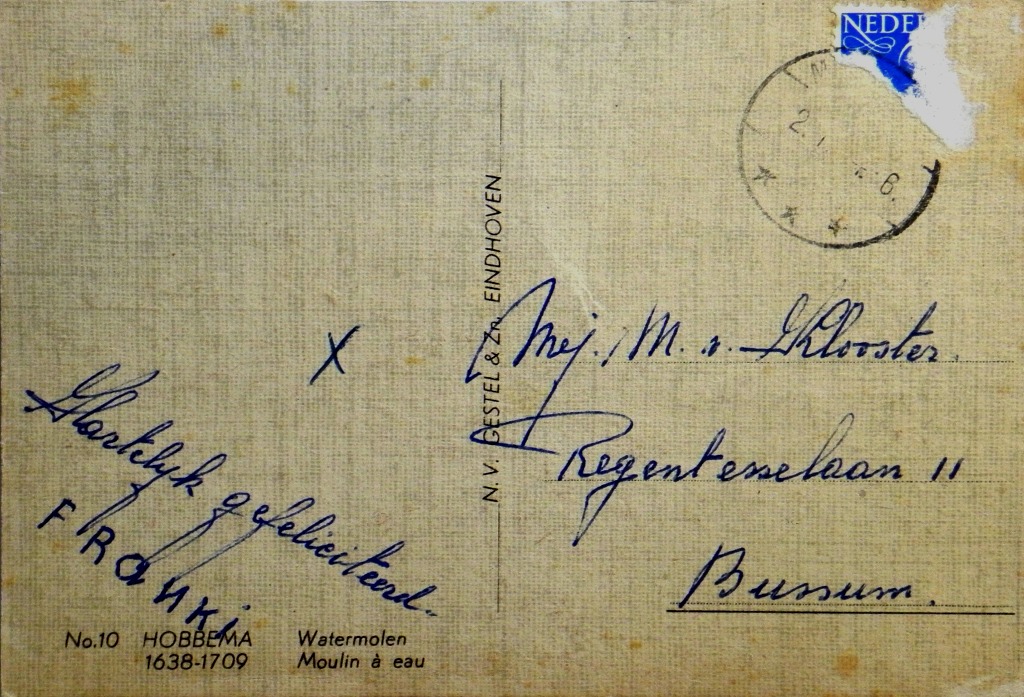 NEDE
2. 6.
N.V. GESTEL & Zn. EINDHOVEN
Mej. M. v. Klooster.
Regentesselaan 11
Bussum.
X
Hartelijk gefeliciteerd.
FRANKi
No.10 HOBBEMA Watermolen
1638-1709 Moulin à eau